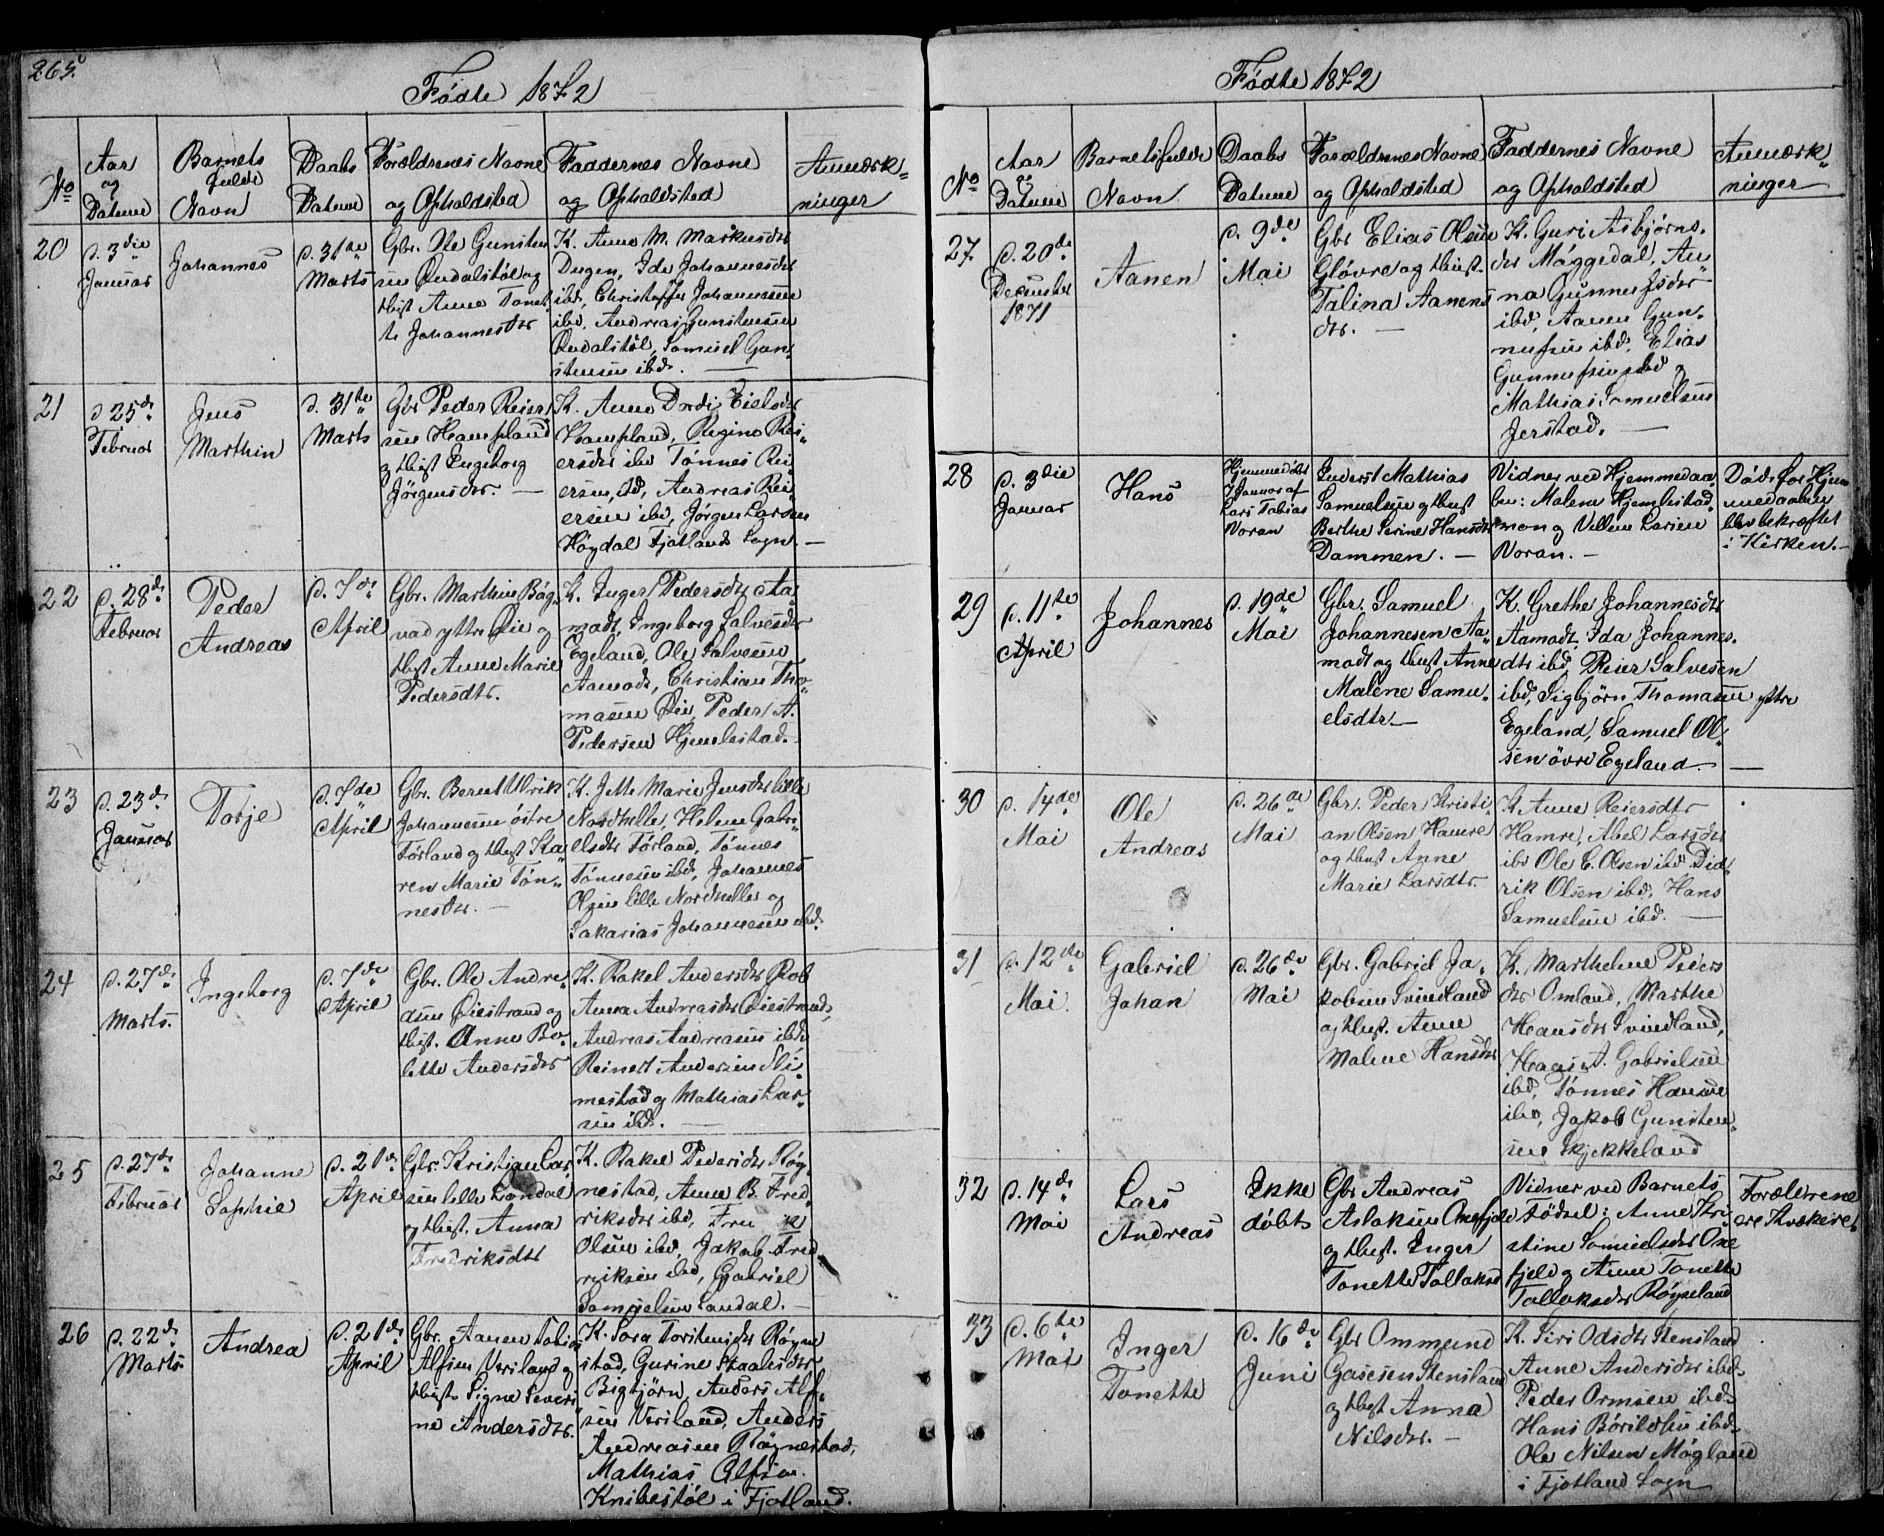 265.
Fødte 1872
No
Aar og Datum
Barnets fulde Navn
Daabs Datum
Forældrenes Navne og Opholdsted
Faddernes Navne og Opholdsted
Anmærkninger
20
d. 3die Januar
Johannes
d. 31te Marts
Gbr. Ole Gunsten
sen Qvdalstøl og
Hust Anne Tonet
te Johannesdtr
K. Anne M. Markusdtr
Dugen, Ida Johannesdtr
ibd, Christoffer Johannesen
ibd, Andreas Gunstensen
Samuel Gun
stensen ibd.
21
d 25de Februar
Jens Marthin
d. 31te Marts
Gbr Peder Reier
sen Hompland
og Hust Engeborg
Jörgensdtr.
K. Anne Dordi Eielsdtr
Hompland, Regine Rei
ersdtr ibd Tönnes Rei
ersen, ibd, Andreas Rei
ersen ibd, Jörgen Larsen
Høgdal Fjotlands Sogn.
22
d. 28de Februar
Peder Andreas
d. 7de April
Gbr. Marthin Bög
vad yttre Øie og
Hust. Anne Marie
Pedersdtr.
K. Inger Pedersdtr Aa
modt, Ingeborg Salvesdtr
Egeland, Ole Salvesen
Aamodt, Christian Tho
masen Øie, Peder A.
Pedersen Hjemlestad.
23
d. 23de Januar
Torje
d. 7de April
Gbr. Bernt Ulrik
Johannesen östre
Förland og Hust Ka
ren Marie Tön
nesdtr.
K. Jette Marie Jensdtr lille
Nordhelle, Helene Gabri
elsdtr Förland, Tönnes
Tönnesen ibd, Johannes
Olsen lille Nordhelle og
Sakarias Johannesen ibd.
24
d. 27de Marts.
Ingeborg
d. 7de April
Gbr. Ole Andre
asen Øiestrand og
Hust. Anne Bo
lette Andersdtr
K. Rakel Andersdtr
Anna Andreasdtr Øiestrand,
Andreas Andreasen ibd
Reinert Andersen Sli
mestad og Mathias Lar
sen ibd.
25
d. 27de Februar
Johanne Sophie
d. 21de April
Gbr. Kristian Lar
sen lille Londal
og Hust. Anna
Fredriksdtr
K. Rakel Pedersdtr Røy
nestad, Anne B. Fred
riksdtr ibd,
Olsen ibd, Jakob Fred
riksen ibd, Gabriel
Samuelsen Londal.
26
d. 22de Marts
Andrea
d. 21de April
Gbr. Aanen Tobias
Alfsen Versland og
Hust Signe Severi
ne Andersdtr.
K. Sara Toritensdtr Røyne
stad, Gurine Staalesdtr
Bigbjörn, Anders Alf
sen Versland, Anders
Andreasen Røynestad,
Mathias Alfsen
Knibestöl i Fjotland.
Fødte 1872
No
Aar og Datum
Barnets fulde Navn
Daabs Datum
Forældrenes Navne og Opholdsted
Faddernes Navne og Opholdsted
Anmærkninger
27
d. 20de December 1871
Aanen
d. 9de Mai
Gbr Elias Olsen
Glövre og Hust.
Talina Aanens
dtr.
K. Guri Asbjørns
dtr Møggedal, An
na Gunnufsdtr
ibd, Aanen Gun
nufsen ibd, Elias
Gunnufsen ibd og
Mathias Samuelsen
Jerstad.
28
d. 3die Januar
Hans
Hjemmedöbt
7 Januar af
Lars Tobias
Voran
Inderst Mathias
Samuelsen og Hust
Berthe Serine Hansdtr
Dammen.
Vidner ved Hjemmedaa
ben: Malene Hjemlestad
mon og Villum Larsen
Voran.
Død før Hjem
medaaben
blev bekræftet
i Kirken.
29
d. 11te April
Johannes
d. 19de Mai
Gbr. Samuel
Johannesen Aa
modt og Hust Anne
Malene Samu
elsdtr
K. Grethe Johannesdtr
Aamodt Ida Johannes
dtr ibd, Reier Salvesen
ibd, Sigbjörn Thomasen yttre
Egeland, Samuel Ol
sen övre Egeland
30
d. 14de Mai
Ole Andreas
d. 26de Mai
Gbr. Peder Kristi
an Olsen Hamre
og Hust Anne
Marie Larsdtr.
K. Anne Reiersdtr
Hamre, Abel Larsdtr
ibd Ole C. Olsen ibd Did
rik Olsen ibd, Hans
Samuelsen ibd.
31
d. 12de Mai
Gabriel Johan
d. 26de Mai
Gbr. Gabriel Ja
kobsen Svindland
og Hust. Anne
Malene Hansdtr
K. Martheline Peders
dtr Omland, Marthe
Hansdtr Svindland,
Hans A. Gabrielsen
ibd, Tönnes Hansen
ibd, Jakob Gunsten
sen Skjekkeland
32
d. 14de Mai
Lars Andreas
Ikke döbt
Gbr Andreas
Aslaksen Oxefjeld
og Hust. Inger
Tonette Tollaksd
Vidner ved Barnets
Födsel: Anne Kri
stine Samuelsdtr Oxe
fjeld og Anne Tonette
Tollaksdtr Röyseland
Forældrene
ere Kvækere.
33
d. 6te Mai
Inger Tonette
d. 16de Juni
Gbr Ommund
Gasesen Stensland
og Hust Anna
Nilsdtr.
K. Siri Odsdtr Stensland
Anne Andersdtr ibd
Peder Ormsen ibd
Hans Börildsen ibd
Ole Nilsen Mögland
i Fjotland Sogn